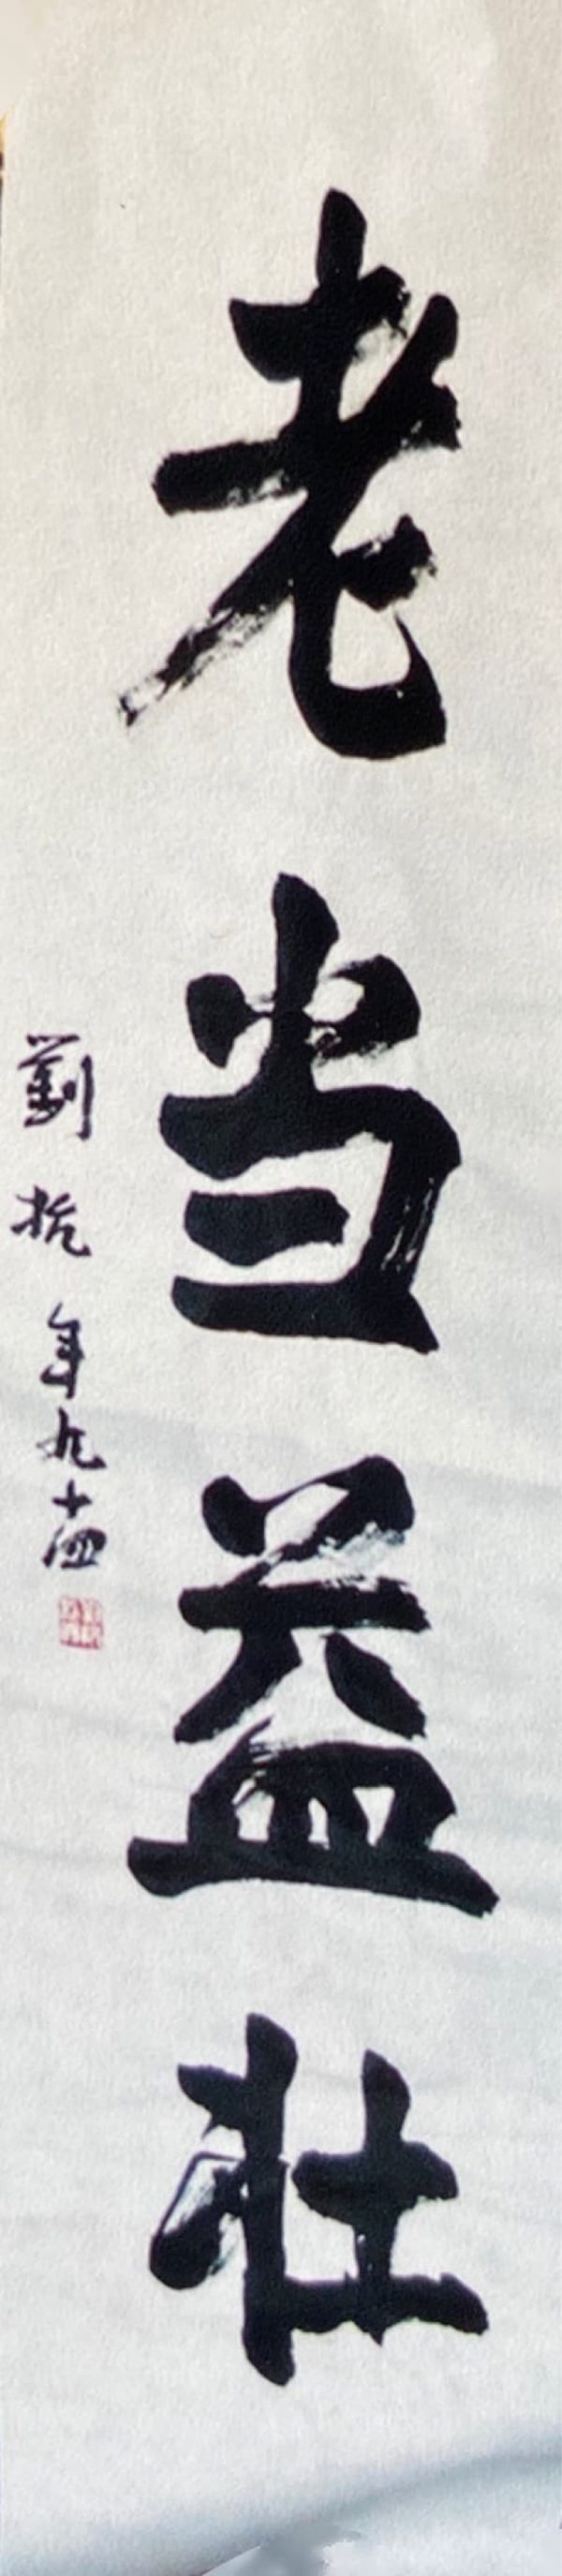 老当益壮
劉抗年九十四